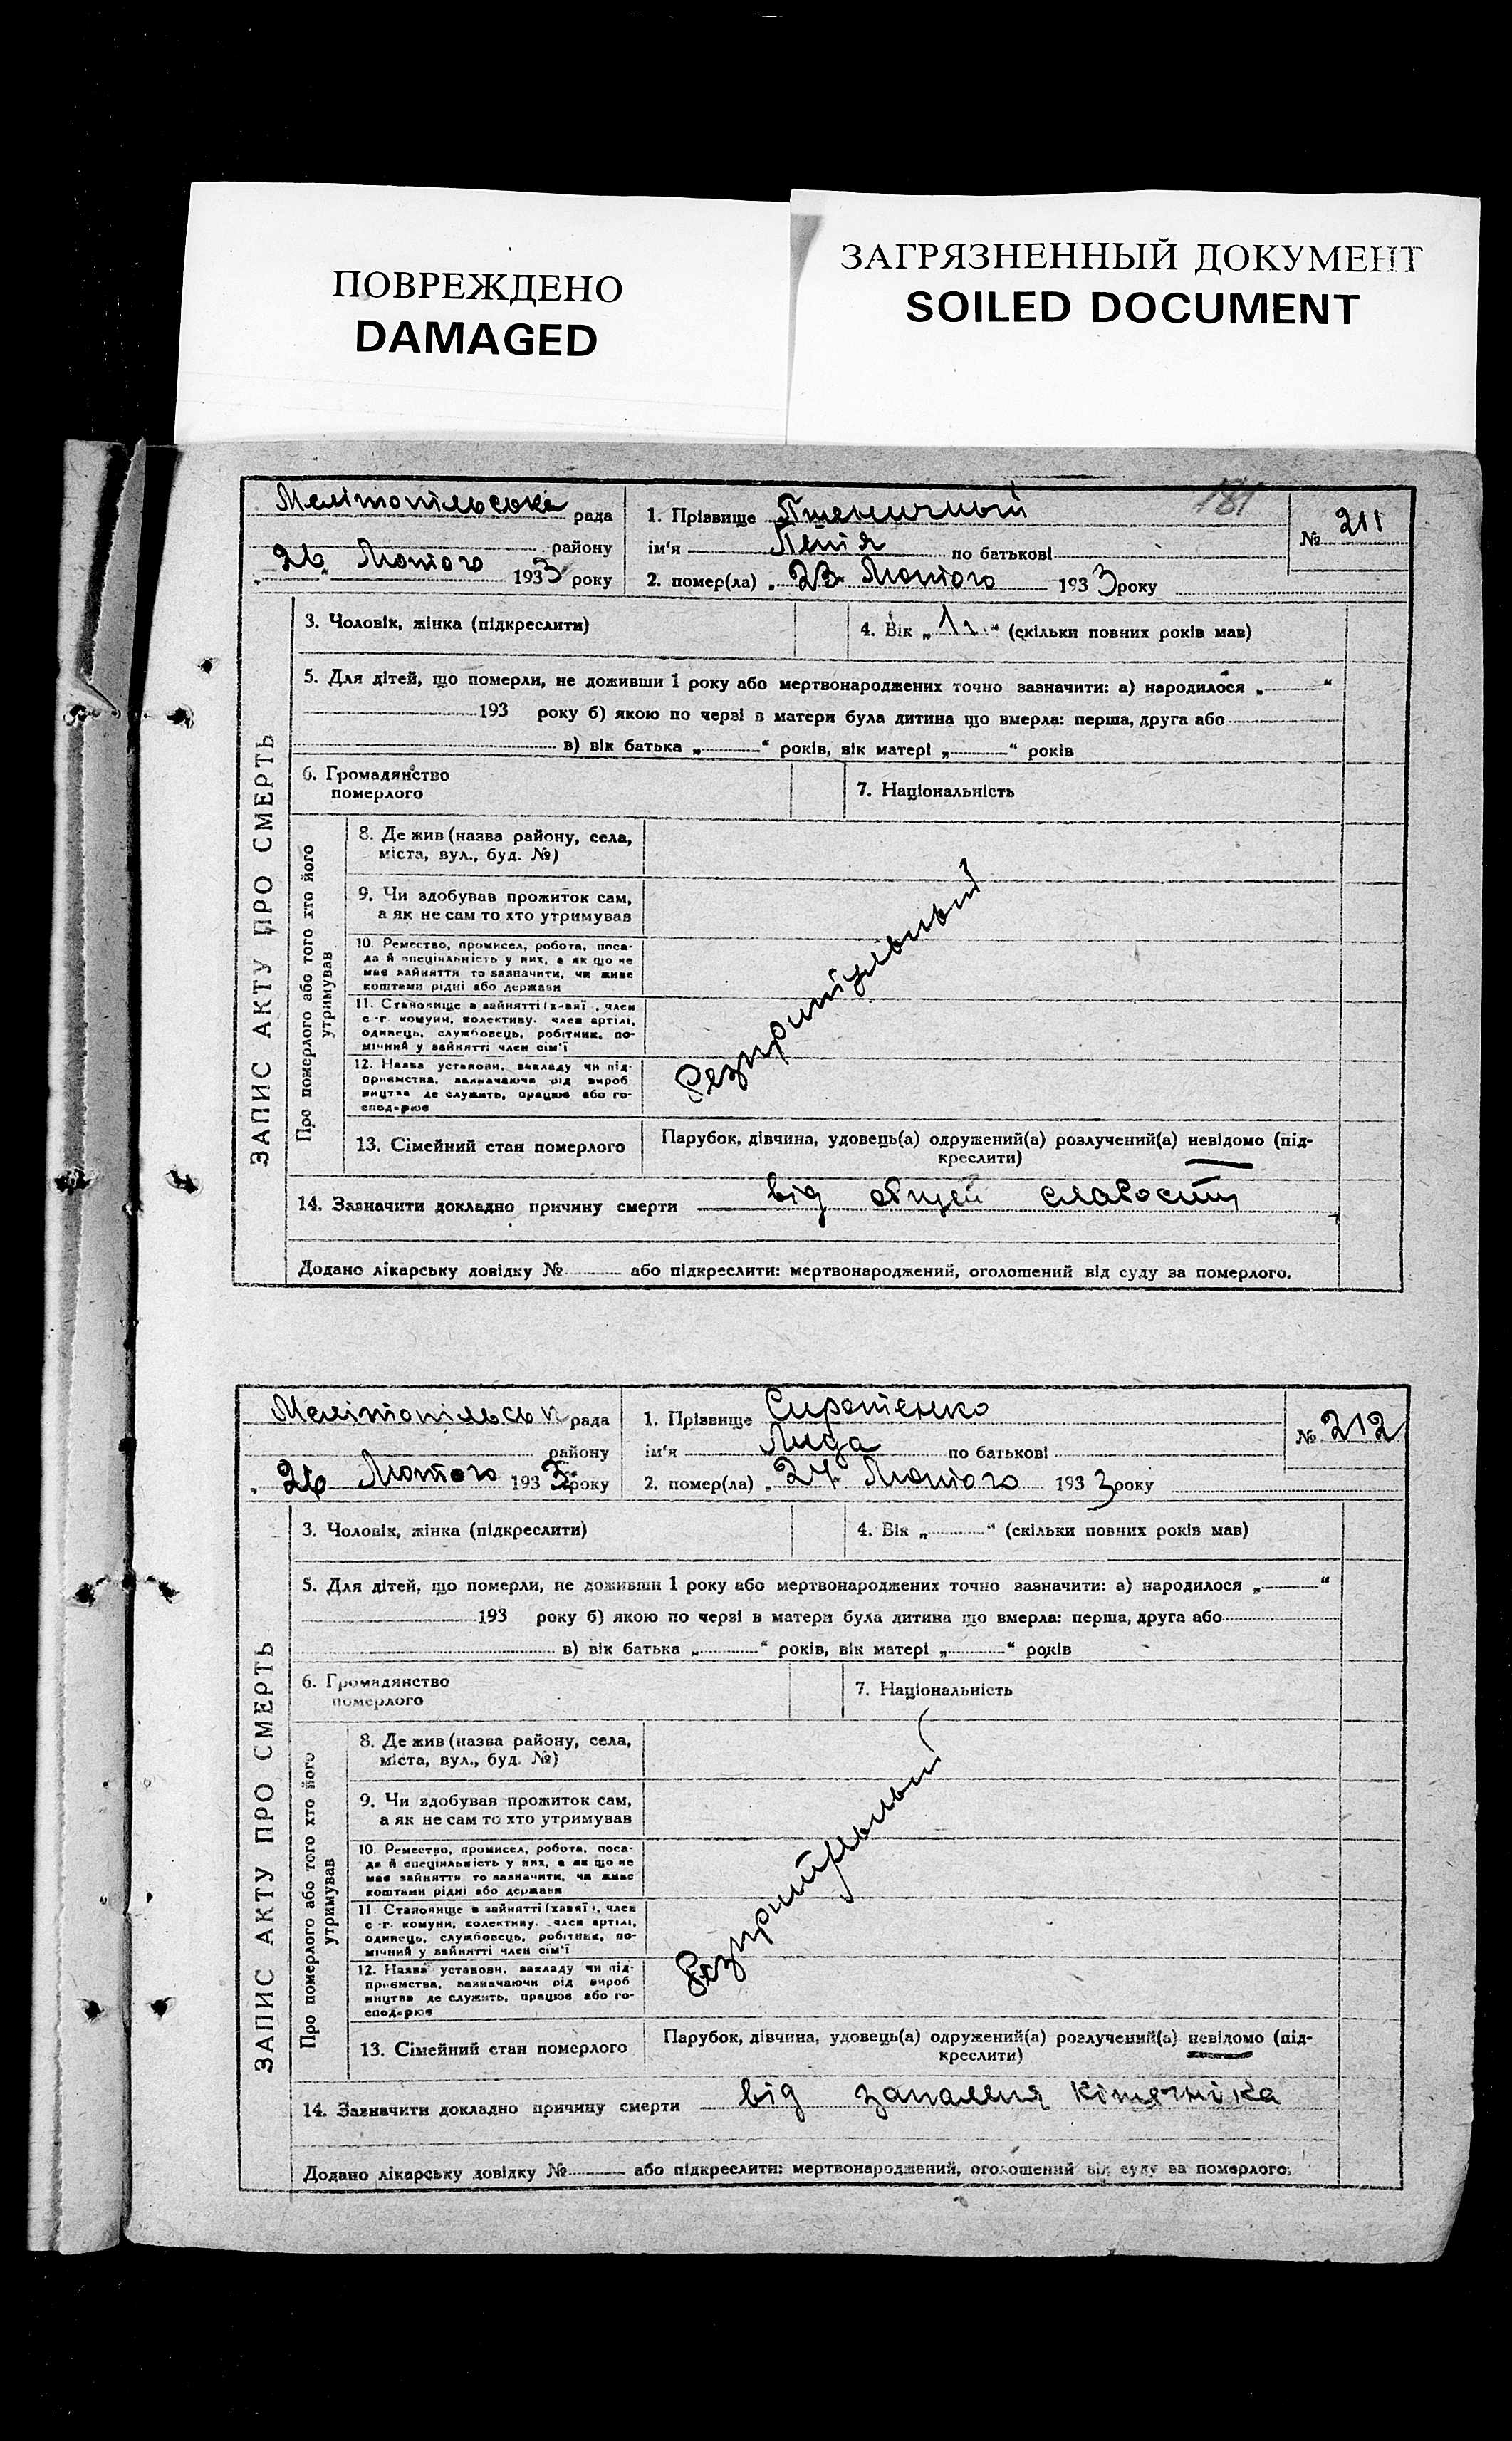 ПОВРЕЖДЕНО
DAMAGED
ЗАГРЯЗНЕННЫЙ ДОКУМЕНТ
SOILED DOCUMENT
181
ЗАПИС АКТУ ПРО СМЕРТЬ
Мелітопільська рада
району
„26„ Лютого 1933 року
1. Прізвище Пшеничный
ім'я Петя по батькові
2. помер(ла) „23 Лютого 1933 року
№ 211
3. Чоловік, жінка (підкреслити)
4. Вік „1г.“ (скільки повних років мав)
5. Для дітей, що померли, не доживши 1 року або мертвонароджених точно зазначити: а) народилося „ “
193 року б) якою по черзі в матери була дитина що вмерла: перша, друга або
в) вік батька „ “ років, вік матері „ “ років
6. Громадянство
померлого
7. Національність
Про померлого або того хто його
утримував
8. Де жив (назва району, села,
міста, вул., буд. №)
9. Чи здобував прожиток сам,
а як не сам то хто утримував
10. Ремество, промисел, робота, поса-
да й спеціяльність у них, а як що не
має зайняття то зазначити, чи живе
коштами рідні або держави
11. Становище в зайнятті (х-яві, член
с.-г. комуни, колективу. член артілі,
одинець, службовець, робітник, по-
мічний у зайнятті член сім'ї
12. Назва установи, закладу чи під-
приємства, зазначаючи рід вироб
ництва де служить, працює або го-
сподарює
безпритульный
13. Сімейний стан померлого
Парубок, дівчина, удовець(а) одружений(а) розлучений(а) невідомо (під-
креслити)
14. Зазначити докладно причину смерти від общей слабости
Додано лікарську довідку № або підкреслити: мертвонароджений, оголошений від суду за померлого.
ЗАПИС АКТУ ПРО СМЕРТЬ
Мелітопільськ рада
району
„26 Лютого 1933 року
1. Прізвище Сиротенко
ім'я Лида по батькові
2. помер(ла) „24 Лютого 1933 року
№ 212
3. Чоловік, жінка (підкреслити)
4. Вік „ “ (скільки повних років мав)
5. Для дітей, що померли, не доживши 1 року або мертвонароджених точно зазначити: а) народилося „ “
193 року б) якою по черзі в матери була дитина що вмерла: перша, друга або
в) вік батька „ “ років, вік матері „ “ років
6. Громадянство
померлого
7. Національність
Про померлого або того хто його
утримував
8. Де жив (назва району, села,
міста, вул., буд. №)
9. Чи здобував прожиток сам,
а як не сам то хто утримував
10. Ремество, промисел, робота, поса-
да й спеціяльність у них, а як що не
має зайняття то зазначити, чи живе
коштами рідні або держави
11. Становище в зайнятті (хазяї, член
с.-г. комуни, колективу. член артілі,
одинець, службовець, робітник, по-
мічний у зайнятті член сім'ї
12. Назва установи, закладу чи під-
приємства, зазначаючи рід вироб
ництва де служить, працює або го-
сподарює
безпритульный
13. Сімейний стан померлого
Парубок, дівчина, удовець(а) одружений(а) розлучений(а) невідомо (під-
креслити)
14. Зазначити докладно причину смерти від запалення кішечніка
Додано лікарську довідку № або підкреслити: мертвонароджений, оголошений від суду за померлого.